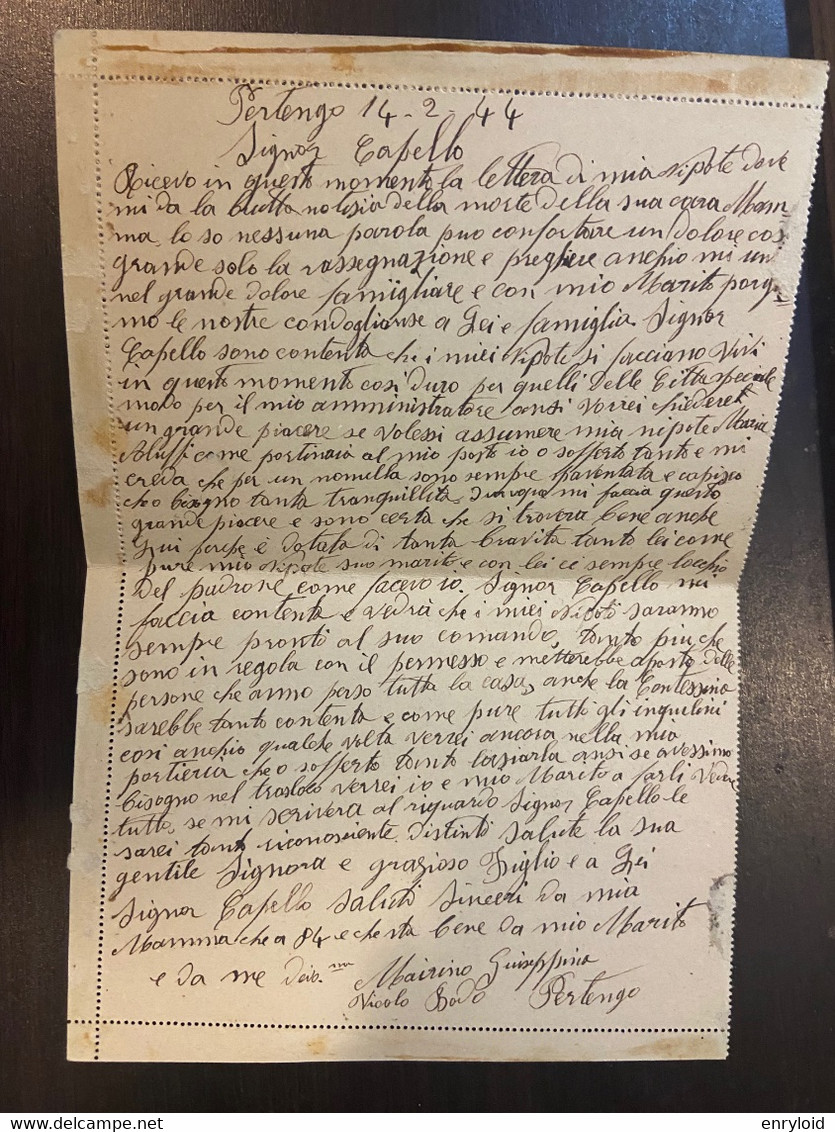 Pertengo 14-2-44
Signor Capello
Ricevo in questo momento la lettera di mia Nipote dove
mi da la brutta notisia della morte della sua cara Mam-
ma, lo so nessuna parola puo confortare un dolore cos
grande solo la rassegnazione e preghiere anchio mi uni
nel grande dolore famigliare e con mio Marito porgia-
mo le nostre condoglianse a Lei e famiglia. Signor
Capello sono contenta che i miei Nipote si facciano Vivi
in questo momento cosi duro per quelli delle Citta speciale
modo per il mio amministratore ansi vorrei chiedere
un grande piacere se volessi assumere mia nipote Maria
Aluffi come portinaia al mio posto io o sofferto tanto e mi
creda che per un nonnulla sono sempre spaventata e capisco
che o bisogno tanta tranquillita, dunque mi faccia questo
grande piacere e sono certa che si trovera bene anche
Lui perche è dotata di tanta bravita tanto lei come
pure mio Nipote suo marito e con lei ce sempre locchio
del padrone come facevo io. Signor Capello mi
faccia contenta e vedrà che i miei Nipoti saranno
sempre pronti al suo comando, tanto piu che
sono in regola con il permesso e metterebbe aposto delle
persone che anno perso tutta la casa, anche la Contessina
sarebbe tanto contenta e come pure tutti gli inquilini
cosi anchio qualche volta verrei ancora nella mia
portieria che o sofferto tanto lasiarla ansi se avessimo
bisogno nel trasloco verrei io e mio Marito a farli vedere
tutto, se mi scrivera al riguardo Signor Capello le
sarei tanto riconosciente. Distinti salute la sua
gentile Signora e grazioso Figlio e a Lei
Signor Capello saluti sinceri da mia
Mamma che a 84 e che sta bene da mio Marito
e da me dev.ma Mairino Giuseppina
Vicolo Bodo Pertengo
enryloid
delcampe.net